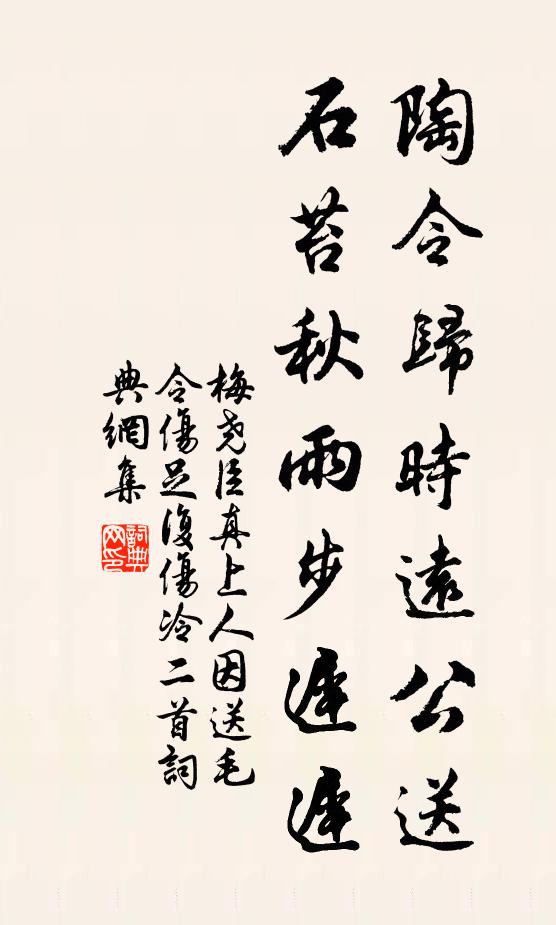 陶令歸時遠公送
石苔秋雨步遲遲
梅堯臣真上人因送毛
令傷足復傷冷二首詞
典網集
詞典網印